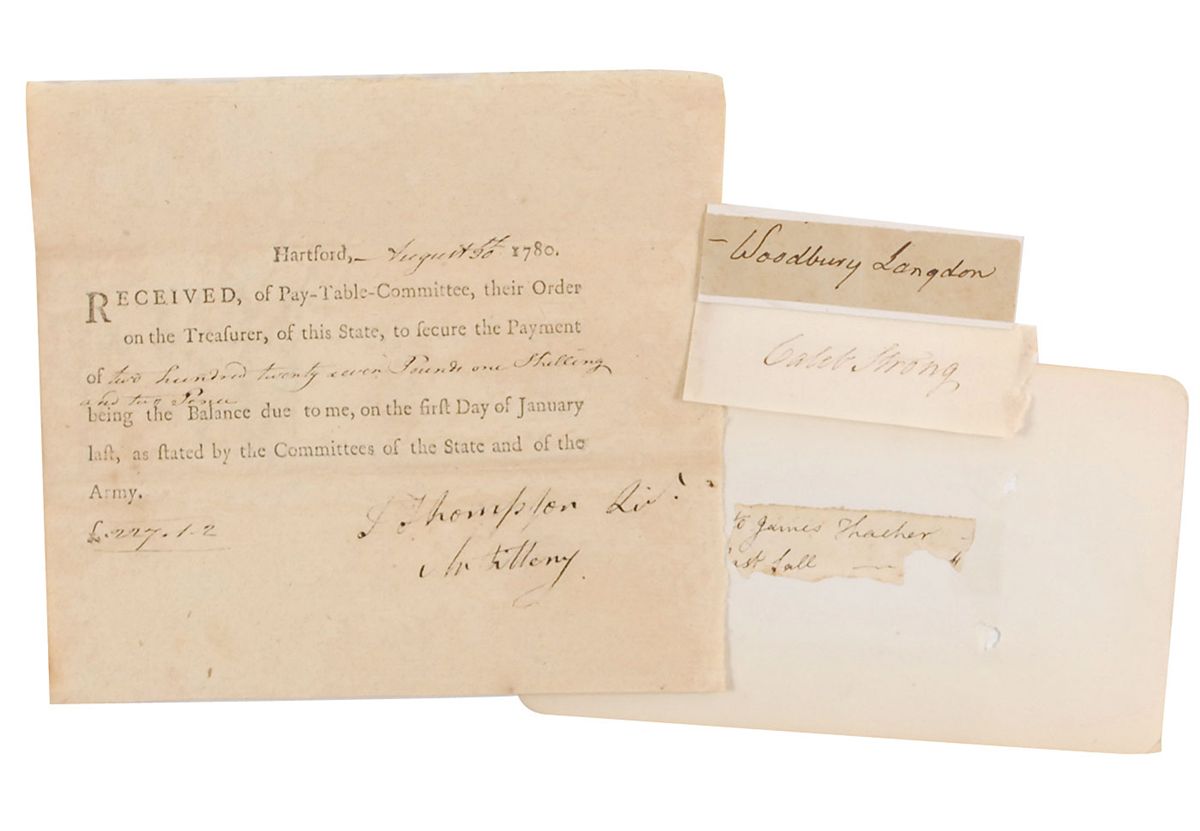 Hartford, August 1780.
RECEIVED, of Pay-Table-Committee, their Order
on the Treaſurer, of this State, to ſecure the Payment
of two hundred twenty seven Pounds one Shilling
and two Pence
being the Balance due to me, on the firſt Day of January
laſt, as ſtated by the Committees of the State and of the
Army.
£.227.1.2
Thompson
Woodbury Langdon
Caleb Strong
to James Thacher
fall